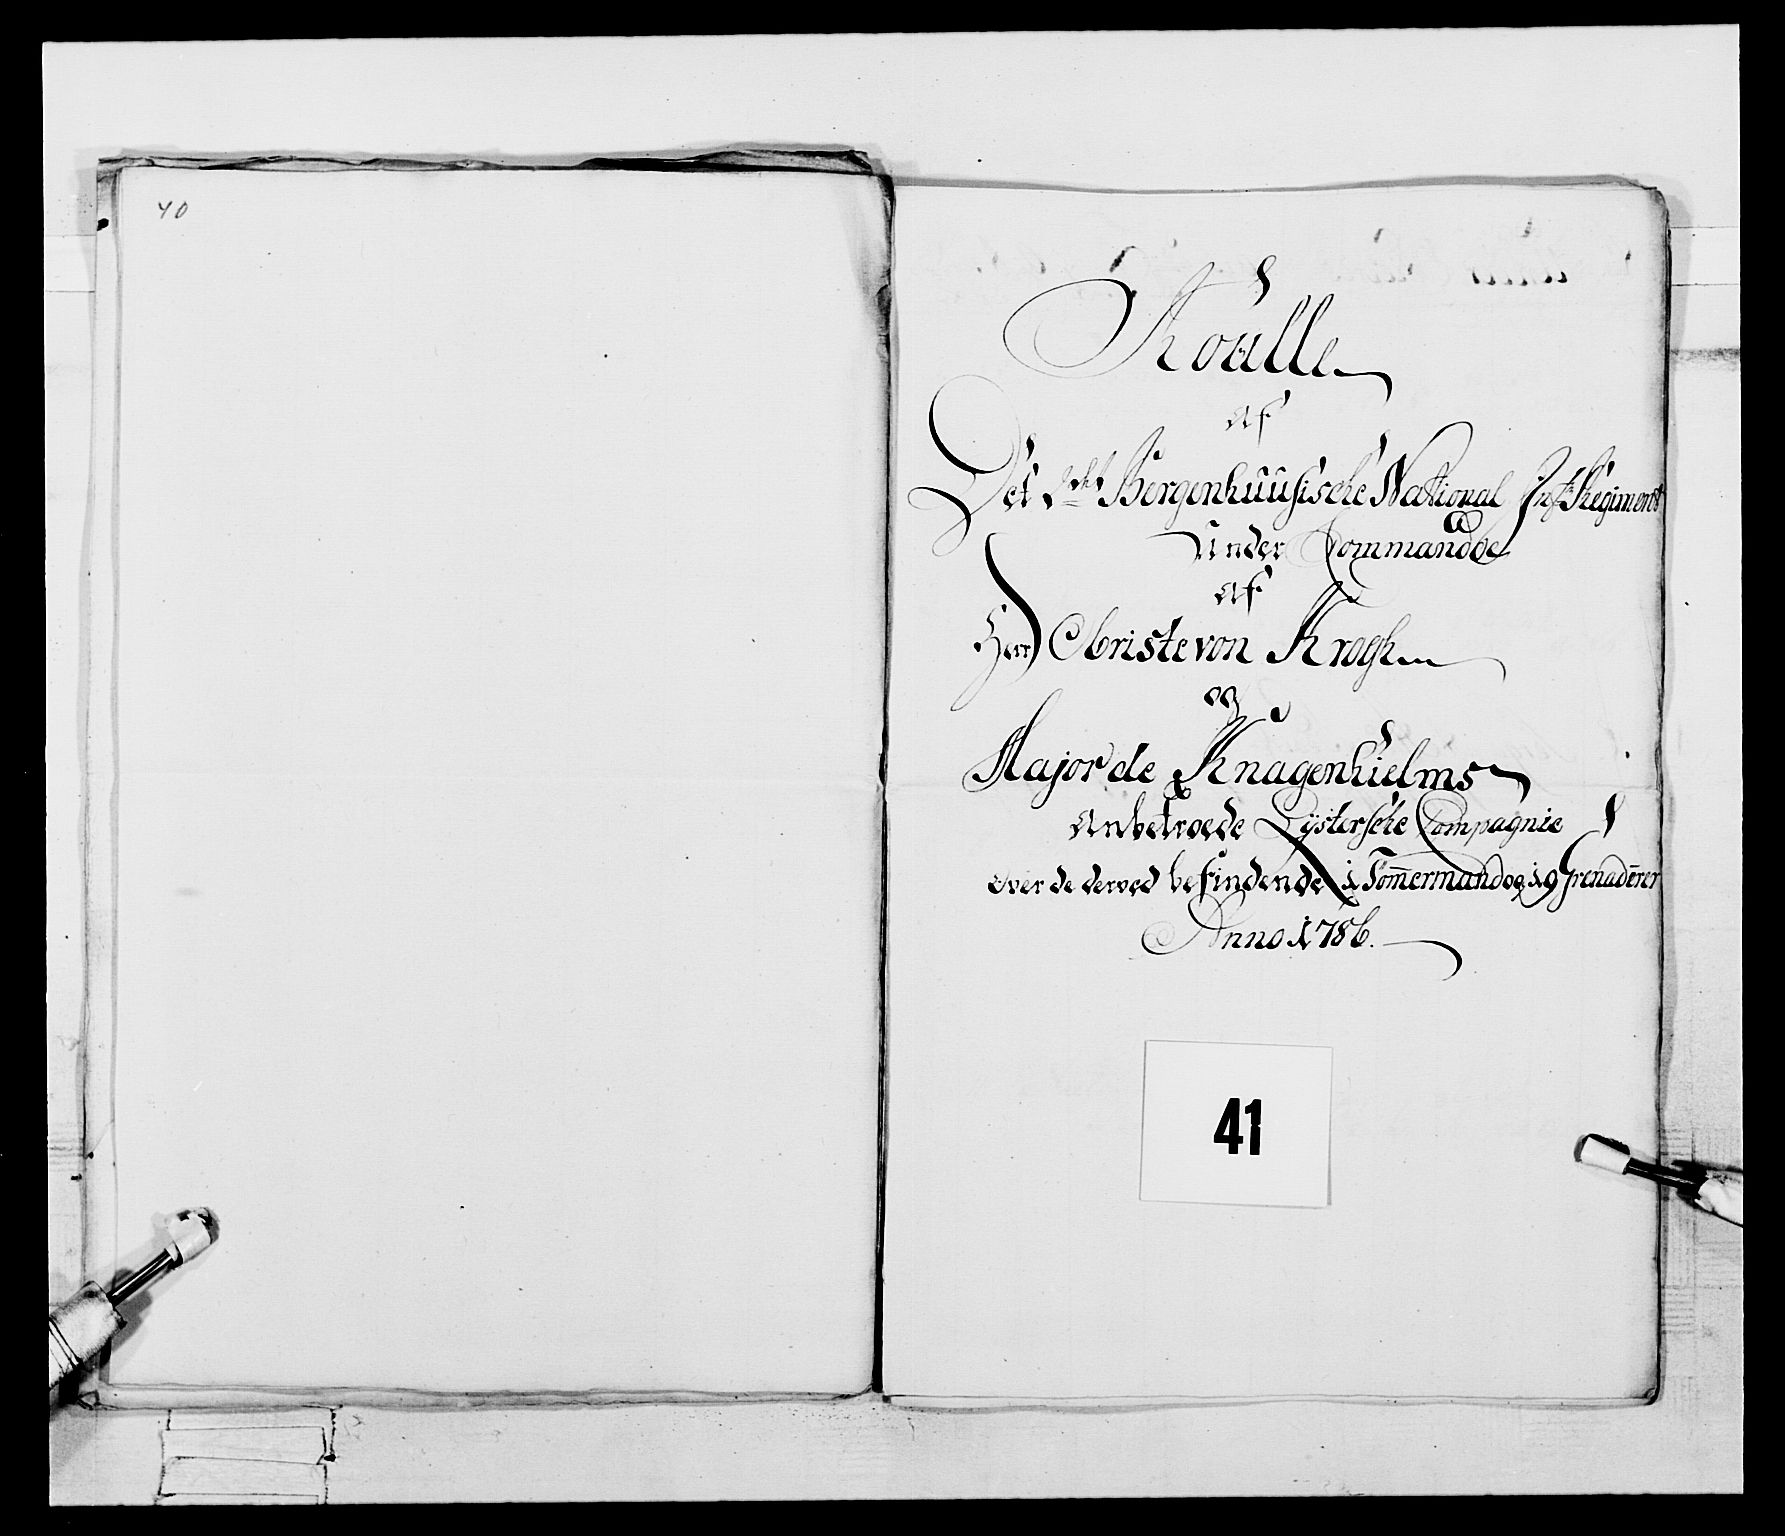 40
Roulle
af
Det 2det Bergenhuusische National Inf: Regiment
Under Commando
af
Herr Obriste von Krogh
og
Major de Knagenhielms
anbetroede Lystersche Compagnie
over de derved befindende 1 Tom̄ermand og 19 Grenaderer
Anno 1786.
41